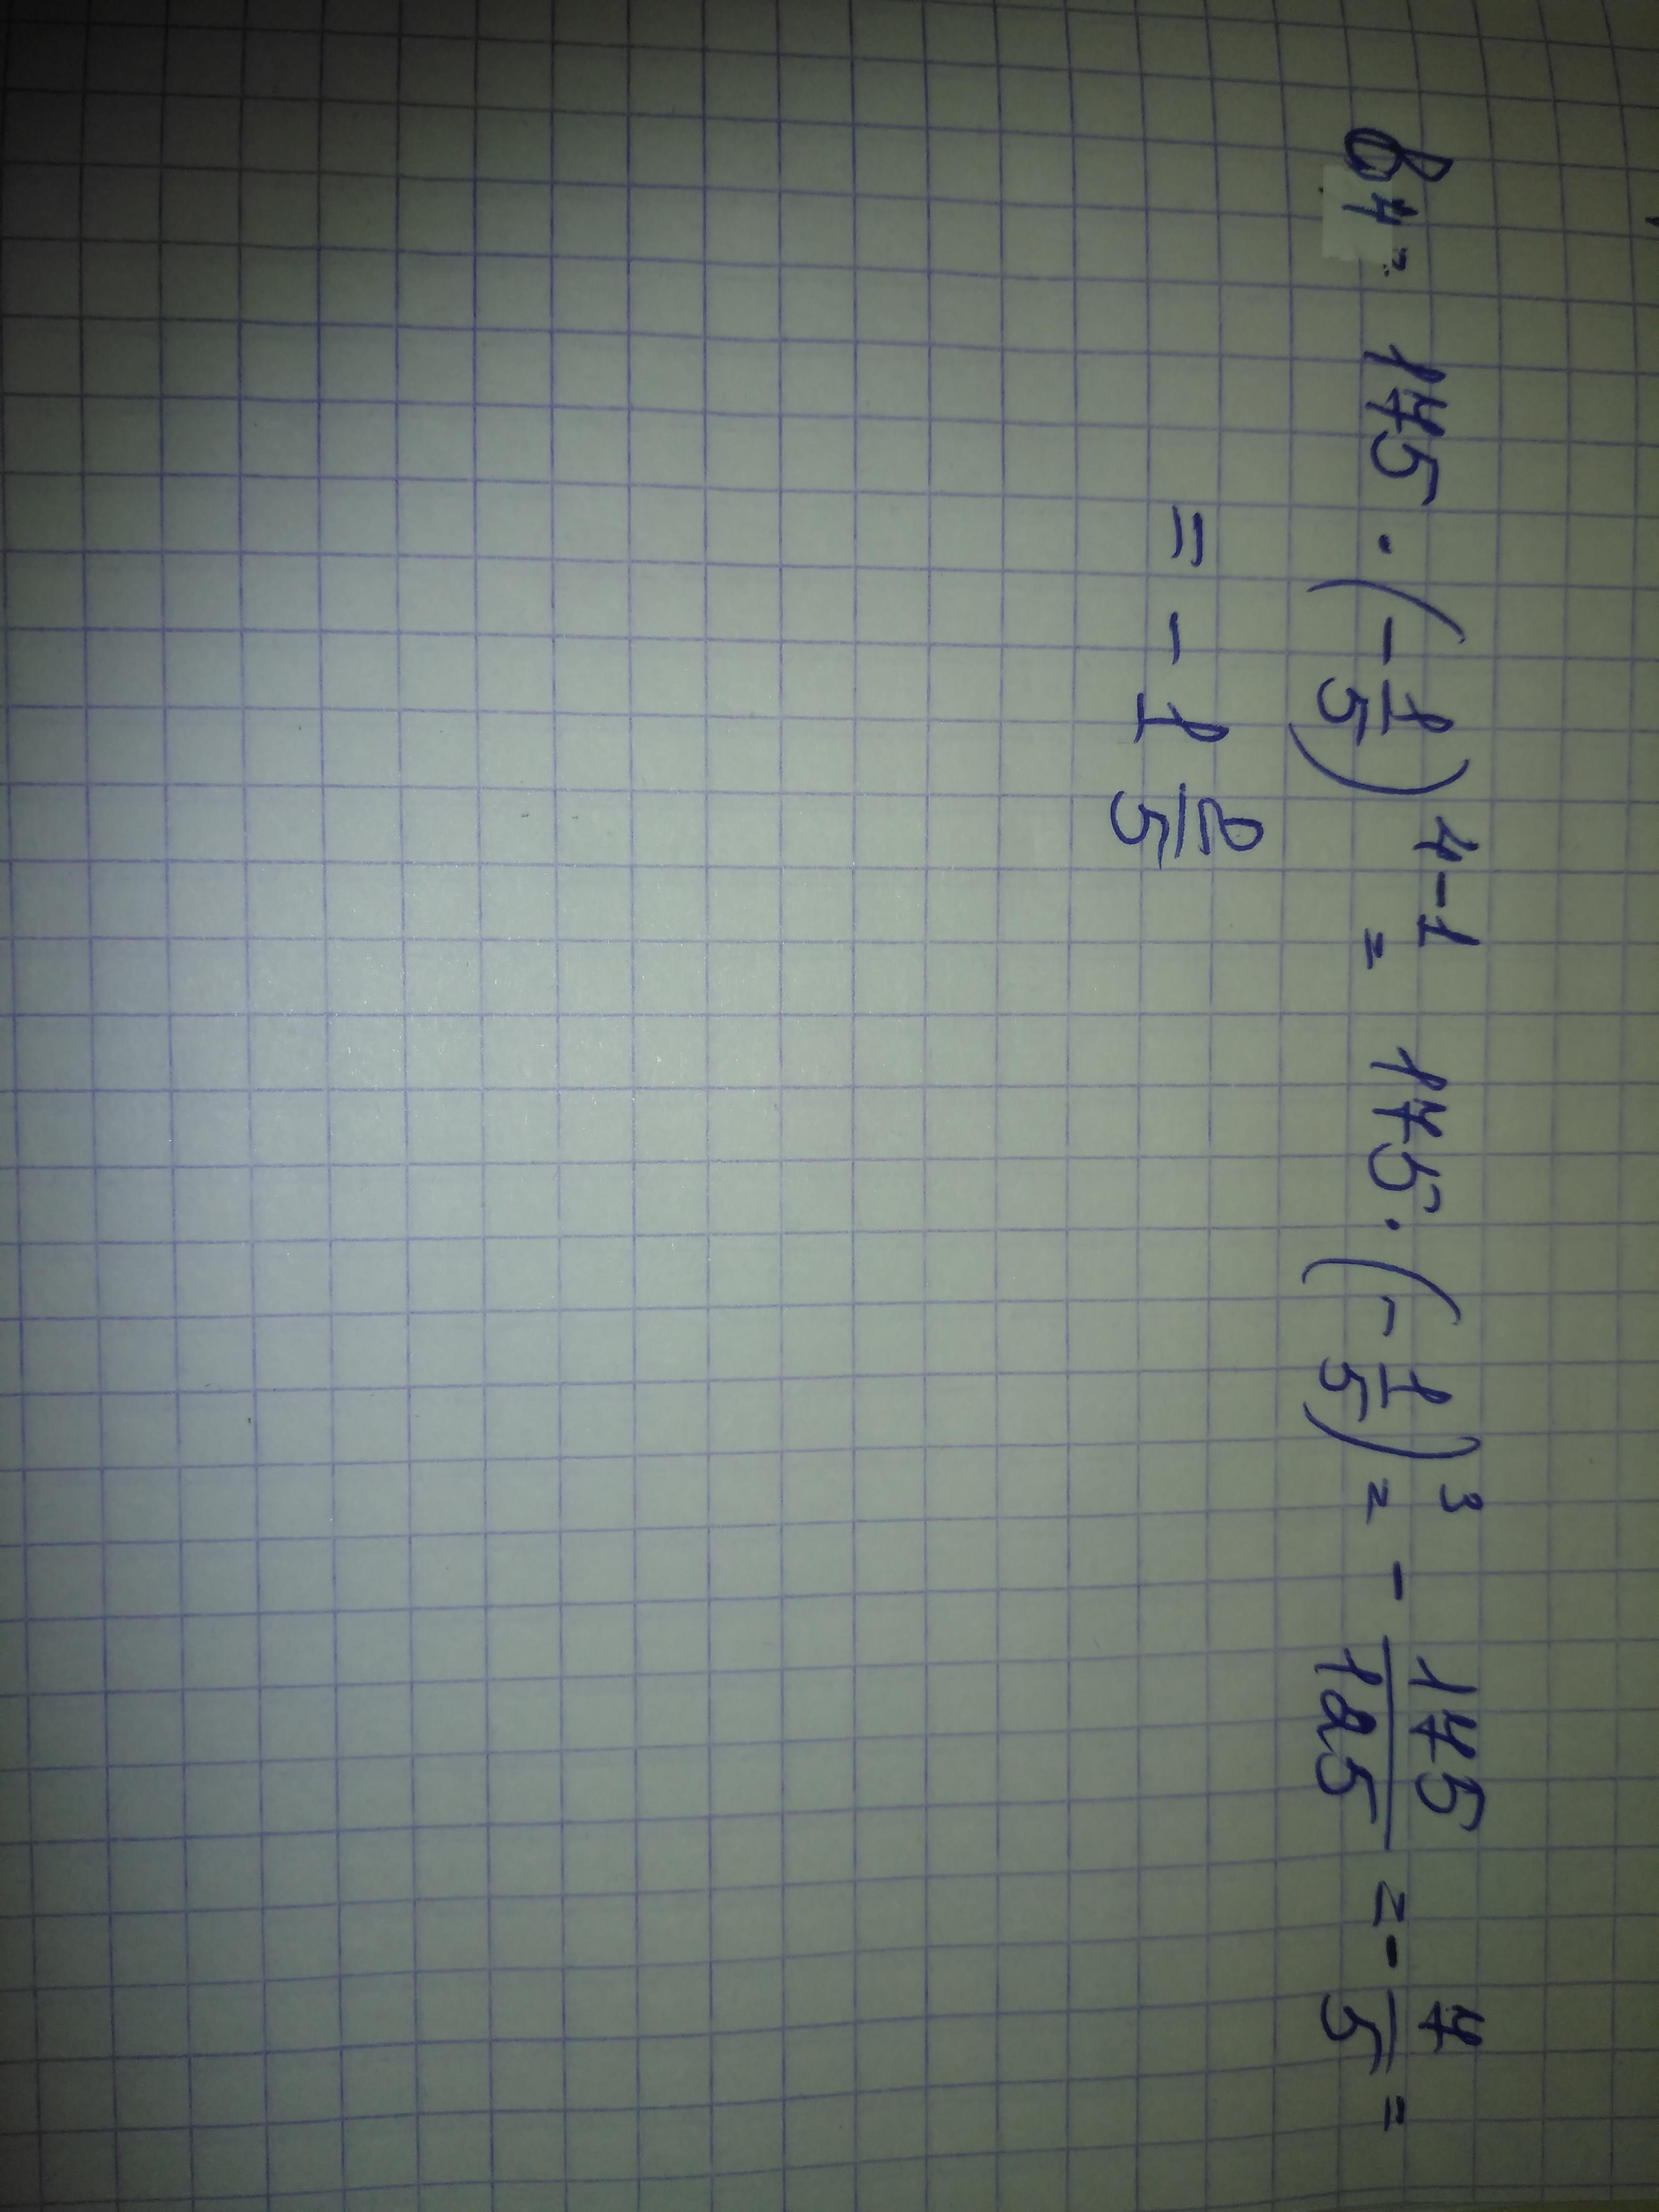 b4 = 175 · (-1/5)^4-1 = 175 · (-1/5)^3 = - 175/125 = - 7/5 =
= - 1 2/5